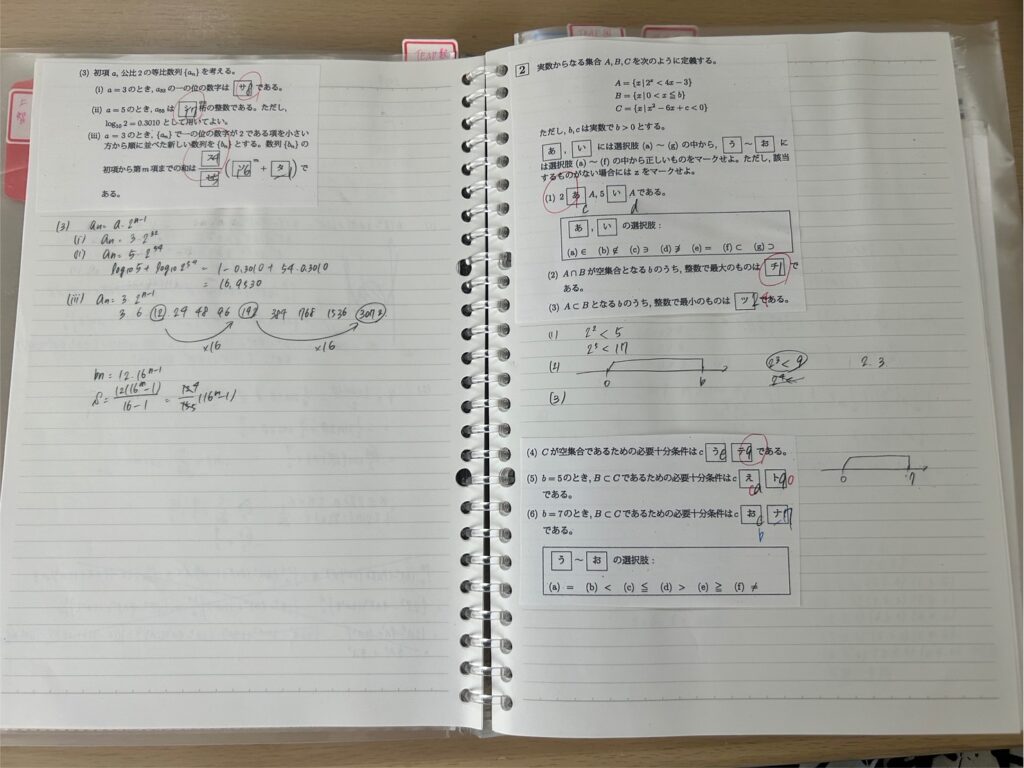 TEAP
(3) 初項 a, 公比 2 の等比数列 {aₙ} を考える。
(i) a = 3 のとき, a₃₃ の一の位の数字は サ である。
(ii) a = 5 のとき, a₅₅ は 桁の整数である。ただし,
log₁₀ 2 = 0.3010 として用いてよい。
(iii) a = 3 のとき, {aₙ} で一の位の数字が 2 である項を小さい
方から順に並べた新しい数列を {bₙ} とする。数列 {bₙ} の
初項から第 m 項までの和は
で
ある。
(3) an = a·2ⁿ⁻¹
(i) an = 3·2³²
(ii) an = 5·2⁵⁴
log10 5 + log10 2⁵⁴ = 1 - 0.3010 + 54·0.3010
= 16.9530
(iii) an = 3·2ⁿ⁻¹
3 6 12 24 48 96 192 384 768 1536 3072
×16 ×16
bn = 12·16ⁿ⁻¹
16 - 1
2 実数からなる集合 A, B, C を次のように定義する。
A = {x | 2ˣ < 4x − 3}
B = {x | 0 < x ≦ b}
C = {x | x² − 6x + c < 0}
ただし, b, c は実数で b > 0 とする。
あ , い には選択肢 (a) ~ (g) の中から, う ~ お に
は選択肢 (a) ~ (f) の中から正しいものをマークせよ。ただし, 該当
するものがない場合には z をマークせよ。
(1) 2 あ A, 5 い A である。
c d
あ , い の選択肢 :
(a) ∈ (b) ∉ (c) ∋ (d) ∌ (e) = (f) ⊂ (g) ⊃
(2) A ∩ B が空集合となる b のうち, 整数で最大のものは チ 1 で
ある。
(3) A ⊂ B となる b のうち, 整数で最小のものは ツ である。
(1) 2² < 5
2⁵ < 17
(2) 0 b 2³ < 9 2.3
(3)
(4) C が空集合であるための必要十分条件は c う テ 9 である。
(5) b = 5 のとき, B ⊂ C であるための必要十分条件は c え ト
である。
(6) b = 7 のとき, B ⊂ C であるための必要十分条件は c お ナ
である。
b
0 7
う ~ お の選択肢 :
(a) = (b) < (c) ≦ (d) > (e) ≧ (f) ≠